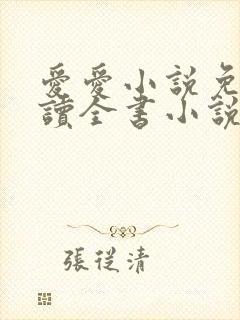 愛愛小説免
讀全書小說
張從清